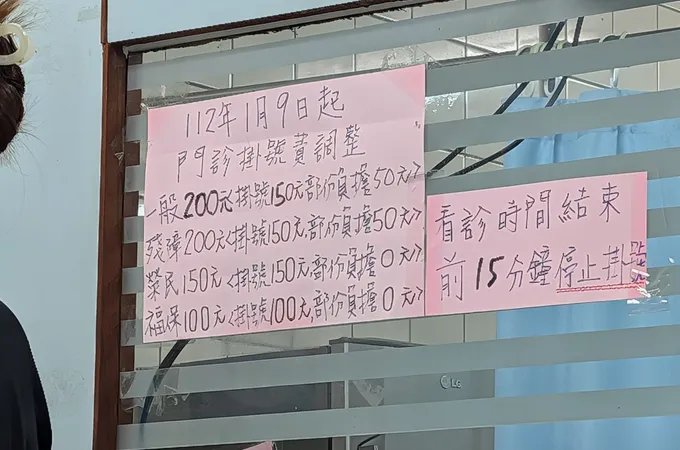 112年1月9日起
門診掛號費調整
一般200元<掛號150元部份負擔50元>
殘障200元<掛號150元部份負擔50元>
榮民150元<掛號150元部份負擔0元>
福保100元<掛號100元,部份負擔0元>
看診時間結束
前15分鐘停止掛號
LG